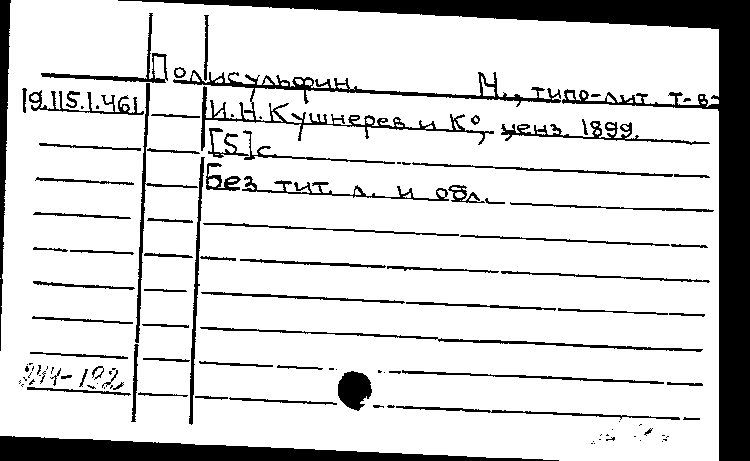 Полисульфин. М., типо-лит. т-ва
19.115.1.461 И.Н. Кушнерев и К°, ценз. 1899.
[5] с.
Без тит. л. и обл.
244-192